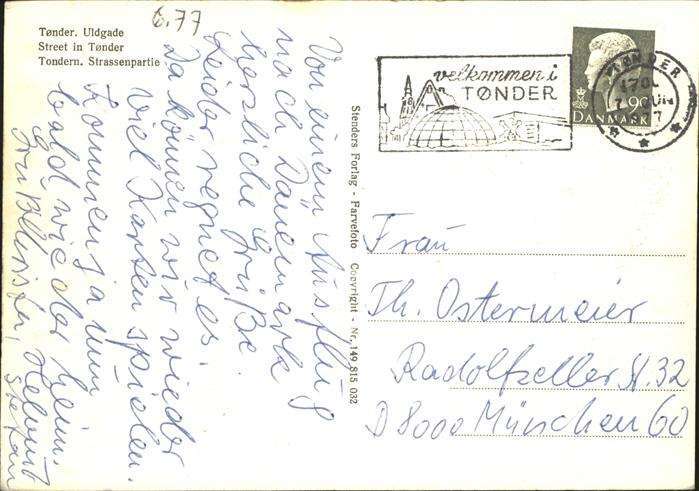 6.77
Tønder. Uldgade
Street in Tønder
Tondern. Strassenpartie
velkommen i
TØNDER
TØNDER
90
DANMARK
Von einem Ausflug
nach Dänemark
herzliche Grüße.
Leider regnet es.
Da können wir wieder
viel Karten spielen.
Kommen ja nun
bald wieder heim.
Helmut
Stefan
Stenders Forlag - Farvefoto Copyright - Nr. 149 815 032
Frau
Th. Ostermeier
Radolfzeller St. 32
D 8000 München 60